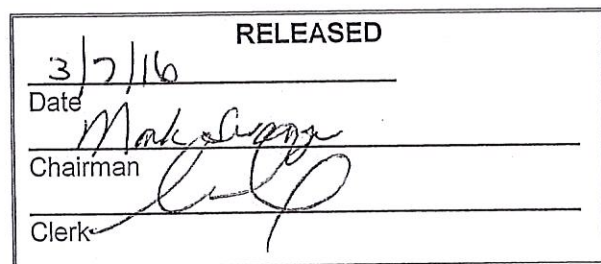 RELEASED
3/7/16
Date
Mark
Chairman
Clerk